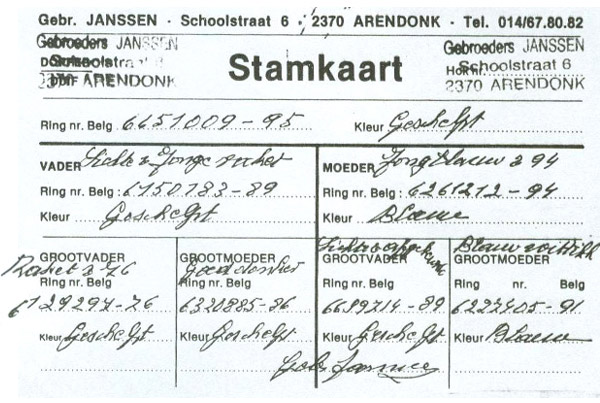 Gebr. JANSSEN - Schoolstraat 6 - 2370 ARENDONK - Tel. 014/67.80.82
Gebroeders JANSSEN
Schoolstraat 6
2370 ARENDONK
Stamkaart
Gebroeders JANSSEN
Schoolstraat 6
2370 ARENDONK
Ring nr. Belg 6651009-95 Kleur Geschelpt
VADER
Ring nr. Belg : 6150183-89
Kleur Geschelpt
MOEDER Jong Blauw 94
Ring nr. Belg : 6261212-94
Kleur Blauw
GROOTVADER
Raket 76
6129297-76
Kleur Geschelpt
GROOTMOEDER
Ring nr. Belg
6320885-86
Kleur Geschelpt
GROOTVADER
Ring nr. Belg
6689714-89
Kleur Geschelpt
GROOTMOEDER
Ring nr. Belg
6227405-91
Kleur Blauw
Gebr Janssen